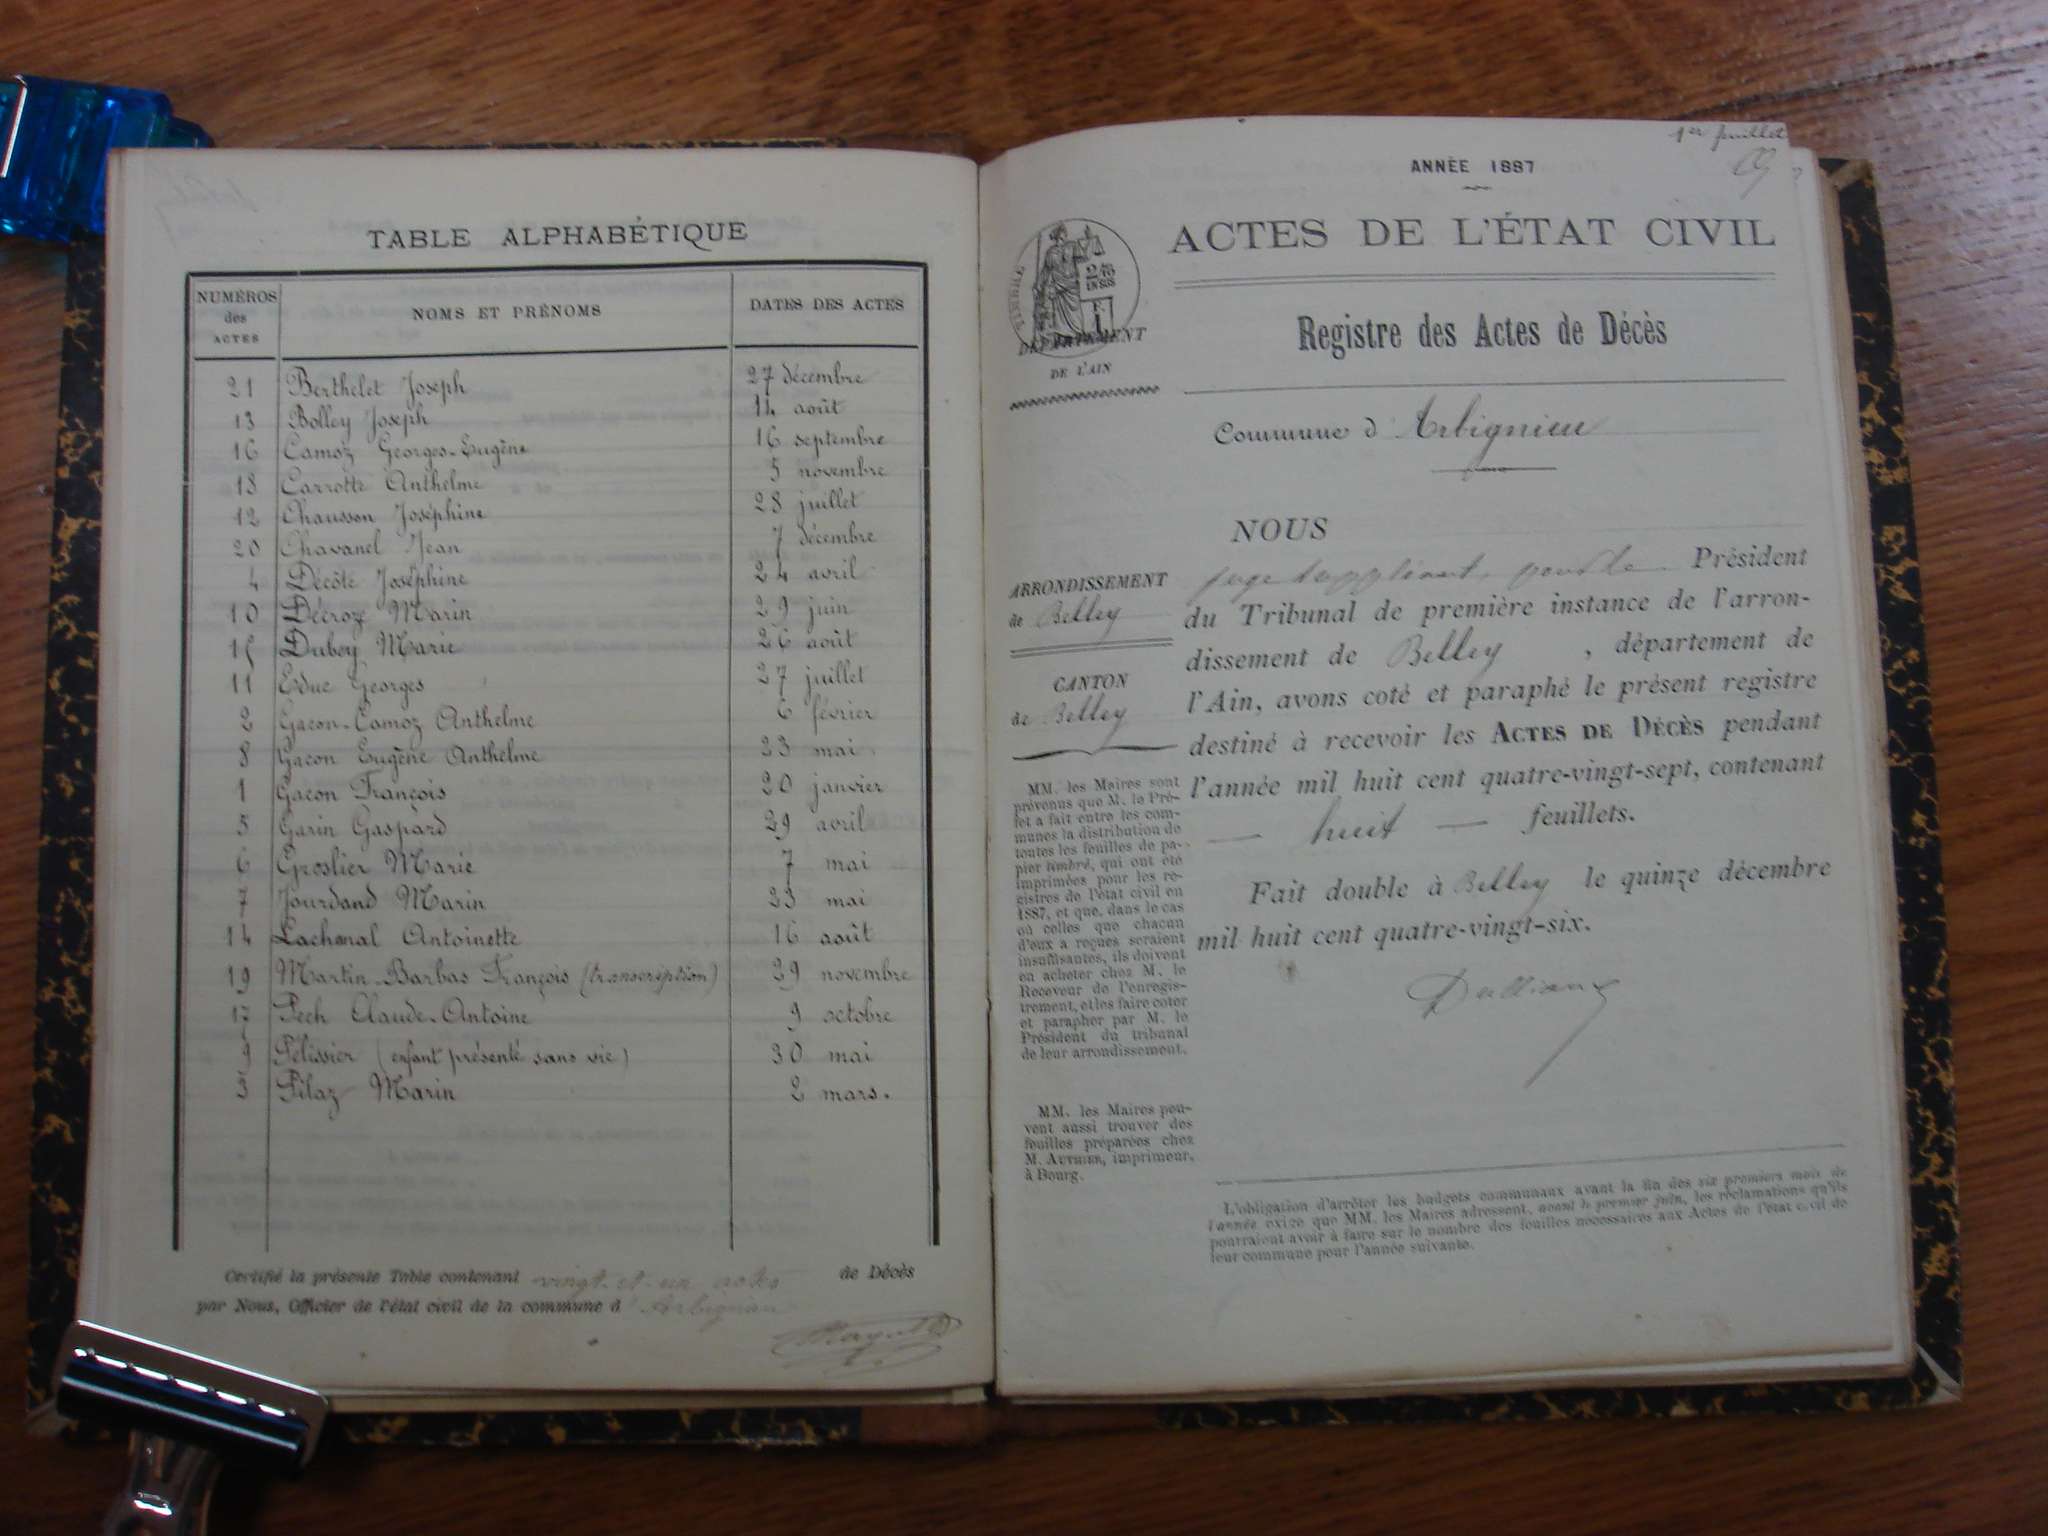 TABLE ALPHABÉTIQUE
NUMÉROS des ACTES NOMS ET PRÉNOMS DATES DES ACTES
21 Berthelet Joseph 27 décembre
13 Bolley Joseph 14 août
16 Camoz Georges-Eugène 16 septembre
18 Carrotte Anthelme 5 novembre
12 Chausson Joséphine 28 juillet
20 Chavanel Jean 7 décembre
4 Décôte Joséphine 24 avril
10 Décroze Marin 29 juin
15 Dubey Marie 26 août
11 Educ Georges 27 juillet
2 Gacon-Camoz Anthelme 6 février
8 Gacon Eugène Anthelme 23 mai
1 Gacon François 20 janvier
5 Garin Gaspard 29 avril
6 Groslier Marie 7 mai
7 Jourdand Marin 23 mai
14 Lachenal Antoinette 16 août
19 Martin-Barbas François (transcription) 29 novembre
17 Pech Claude-Antoine 9 octobre
9 Pélissier (enfant présenté sans vie) 30 mai
3 Pilaz Marin 2 mars.
Certifié la présente Table contenant vingt-et-un actes de Décès
par Nous, Officier de l'état civil de la commune d'Arbignieu
1er feuillet
ANNÉE 1887
ACTES DE L'ÉTAT CIVIL
DÉPARTEMENT
DE L'AIN
Registre des Actes de Décès
Commune d'Arbignieu
NOUS
juge suppléant, pour le Président
du Tribunal de première instance de l'arron-
dissement de Belley, département de
l'Ain, avons coté et paraphé le présent registre
destiné à recevoir les ACTES DE DÉCÈS pendant
l'année mil huit cent quatre-vingt-sept, contenant
— huit — feuillets.
Fait double à Belley le quinze décembre
mil huit cent quatre-vingt-six.
ARRONDISSEMENT
de Belley
CANTON
de Belley
MM. les Maires sont
prévenus que M. le Pré-
fet a fait entre les com-
munes la distribution de
toutes les feuilles de pa-
pier timbré, qui ont été
imprimées pour les re-
gistres de l'état civil en
1887, et que, dans le cas
où celles que chacun
d'eux a reçues seraient
insuffisantes, ils doivent
en acheter chez M. le
Receveur de l'enregis-
trement, et les faire coter
et parapher par M. le
Président du tribunal
de leur arrondissement.
MM. les Maires peu-
vent aussi trouver des
feuilles préparées chez
M. AUTHIER, imprimeur,
à Bourg.
L'obligation d'arrêter les budgets communaux avant la fin des six premiers mois de
l'année exige que MM. les Maires adressent, avant le premier juin, les réclamations qu'ils
pourraient avoir à faire sur le nombre des feuilles nécessaires aux Actes de l'état civil de
leur commune pour l'année suivante.